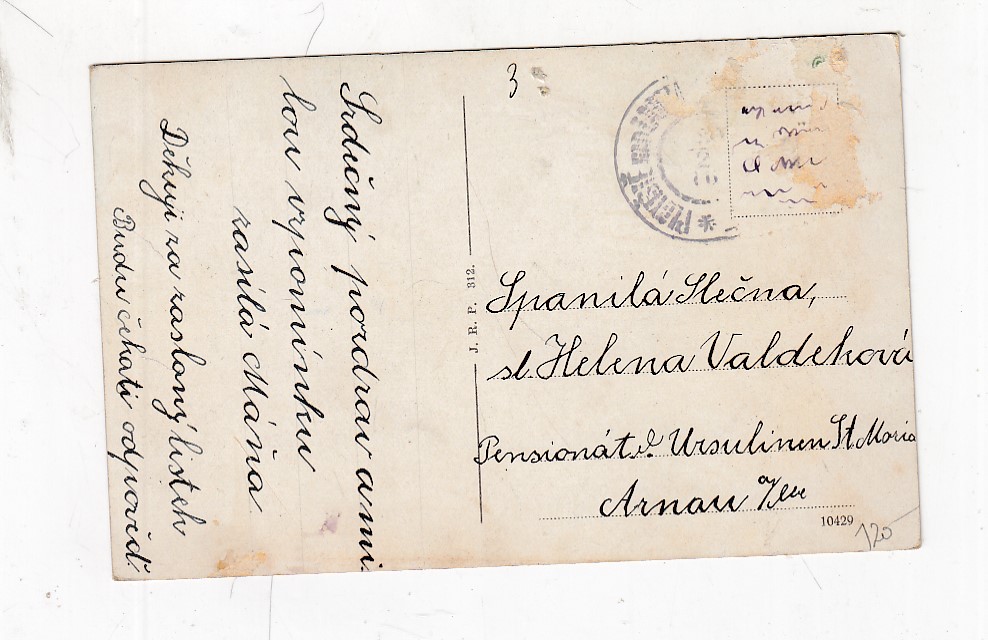 3
Srdečný pozdrav a mi-
lou vzpomínku
zasílá Máňa
Děkuji za zaslaný lísteh
Budu čekati odpověď.
J. R. P. 312.
Spanilá Slečna,
sl. Helena Valdeková
Pensionát d. Ursulinen St Maria
Arnau a/Elbe
10429
120